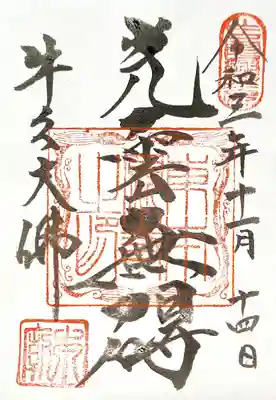 令和二年十一月十四日
光雲無碍
牛久大佛